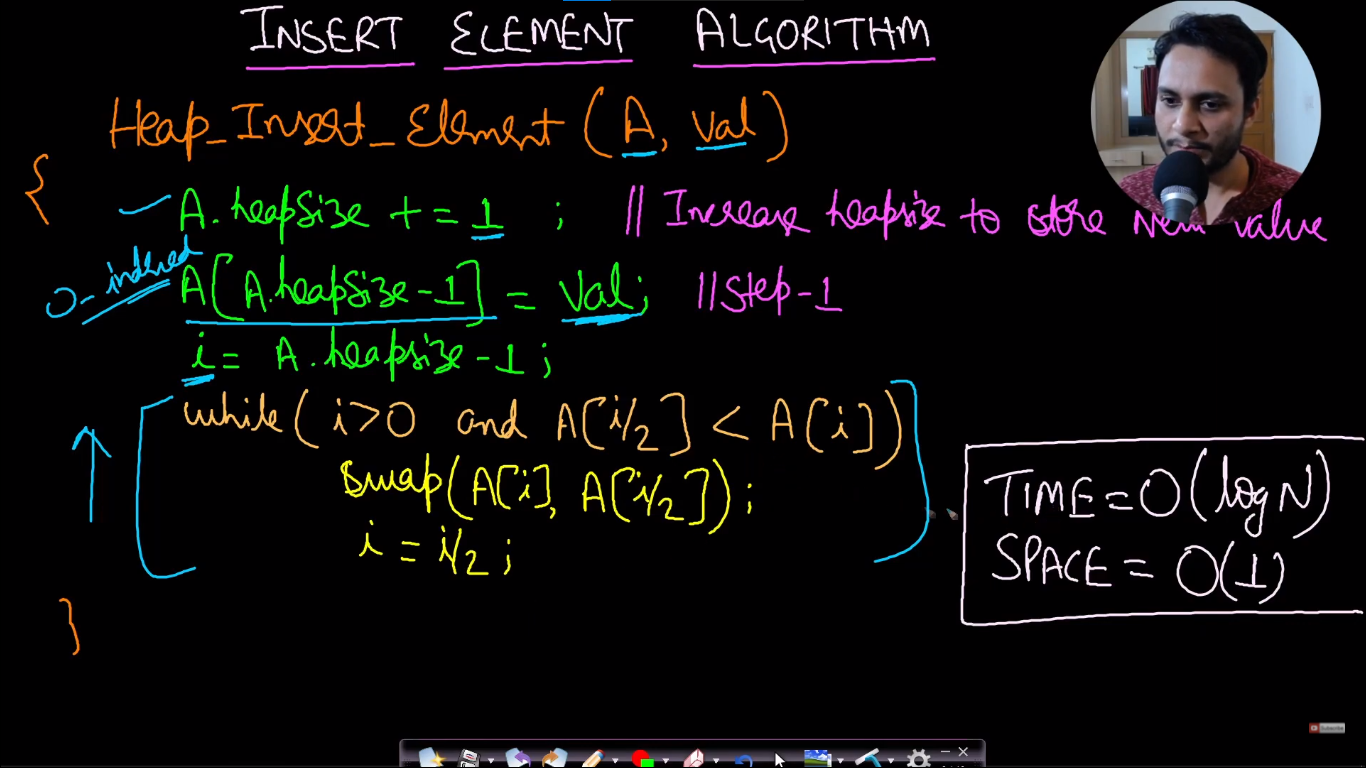 INSERT ELEMENT ALGORITHM
Heap_Insert_Element (A, val)
{
A.heapSize += 1 ; || Increase heapsize to store New value
0-indexed
A[A.heapSize-1] = val; ||Step-1
i = A.heapsize-1;
while( i>0 and A[i/2] < A[i])
swap(A[i], A[i/2]);
i = i/2 ;
}
TIME = O(log N)
SPACE = O(1)
Subscribe